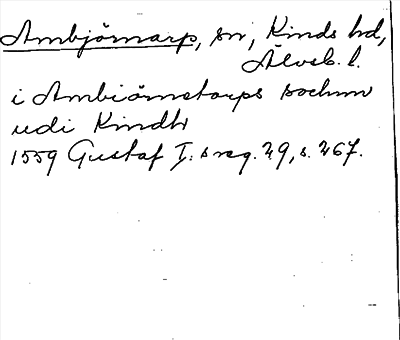 Ambjörnarp, sn, Kinds hd,
Älvsb. l.
i Ambiörnetorps sochnn
udi Kindh
1559 Gustaf I:s reg. 29, s. 267.